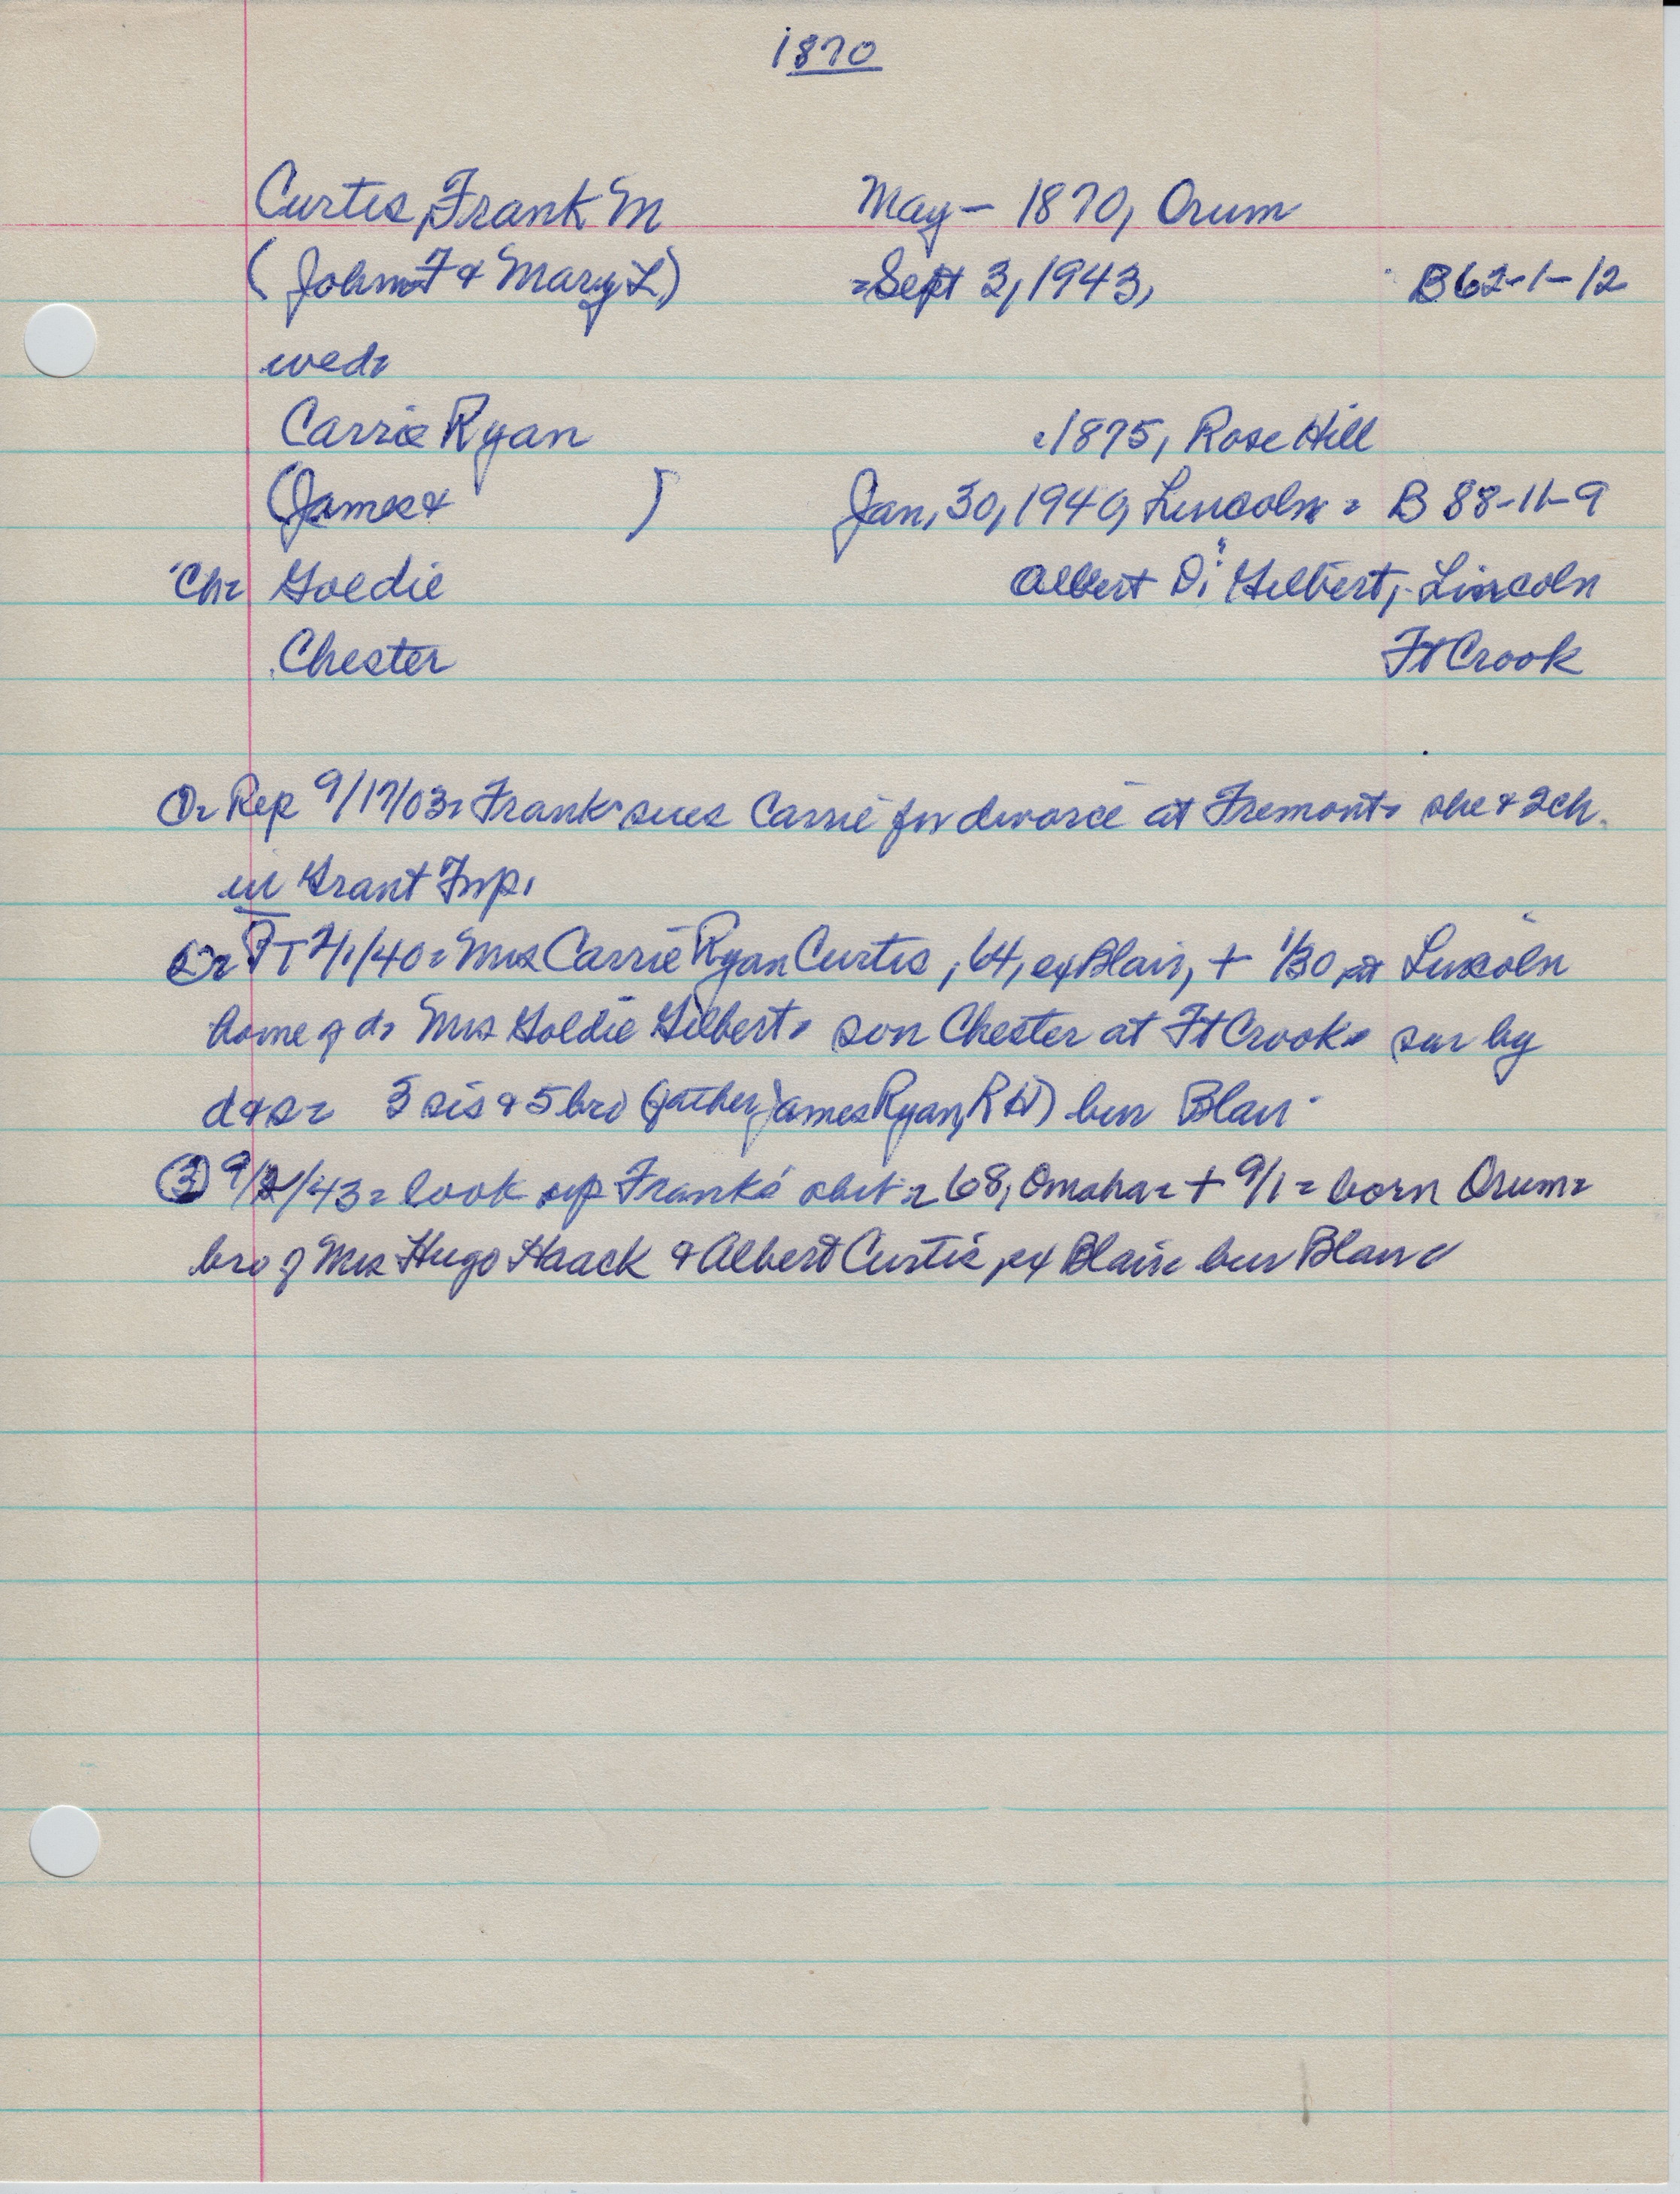 1870
Curtis, Frank M May - 1870, Orum
(John F & Mary L) = Sept 3, 1943, B 62-1-12
wed:
Carrie Ryan c1875, Rose Hill
(James & ) Jan, 30, 1940, Lincoln = B 88-11-9
Ch: Goldie Albert D. Gilbert, Lincoln
Chester Ft Crook
Rep 9/17/03: Frank sues Carrie for divorce at Fremont. she & 2 ch.
in Grant Twp.
PT 2/1/40: Mrs Carrie Ryan Curtis, 64, ex Blair, + 1/30 at Lincoln
home of d. Mrs Goldie Gilbert. son Chester at Ft Crook. sur by
d & s: 3 sis & 5 bro (father James Ryan, RH) bur Blair.
(3) 9/2/43: look up Frank's obit: 68, Omaha: + 9/1 = born Orum:
bro of Mrs Hugo Haack & Albert Curtis, ex Blair: bur Blair